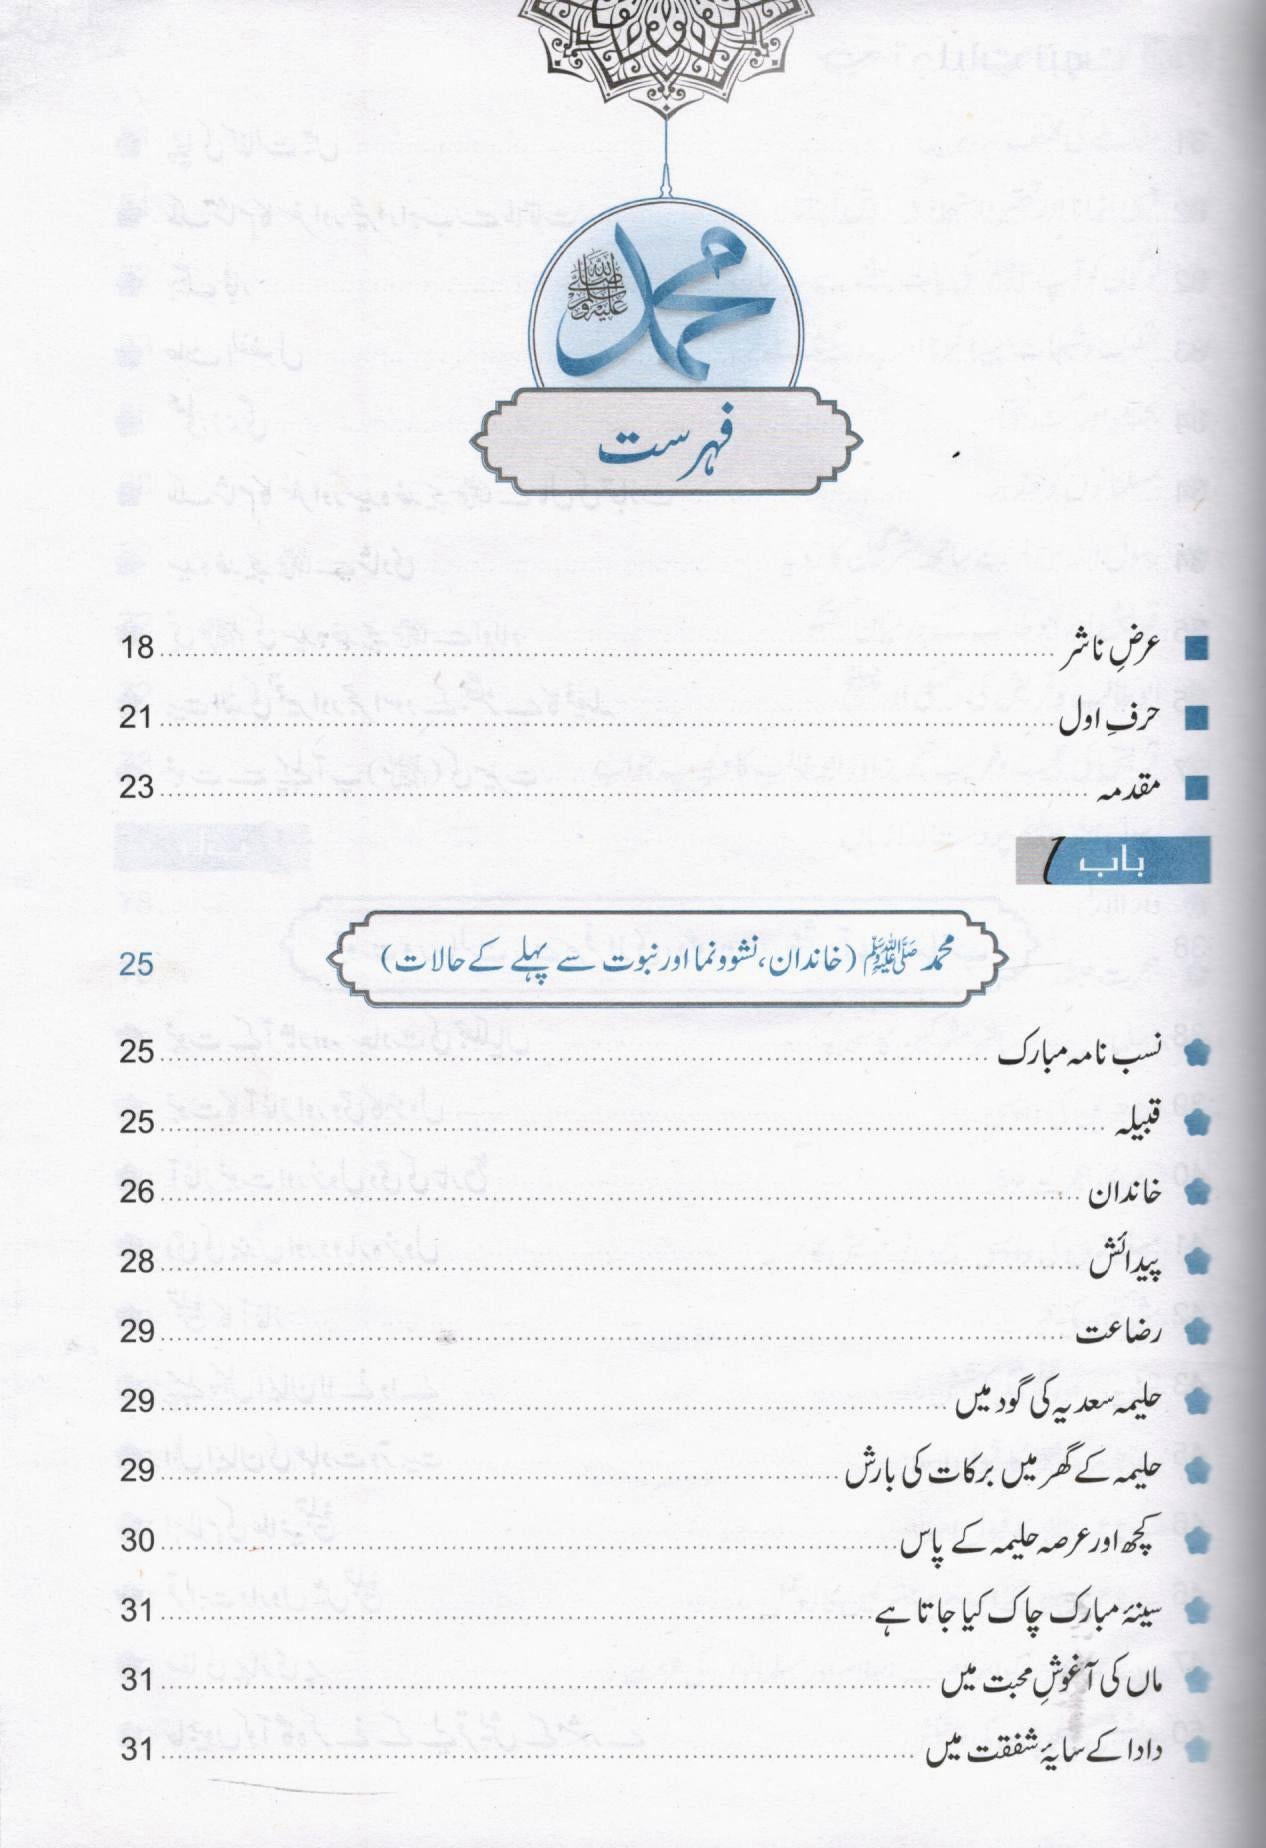 محمد
صلى الله عليه وسلم
فہرست
عرضِ ناشر 18
حرفِ اول 21
مقدمہ 23
باب 1
محمد ﷺ (خاندان، نشوونما اور نبوت سے پہلے کے حالات) 25
نسب نامہ مبارک 25
قبیلہ 25
خاندان 26
پیدائش 28
رضاعت 29
حلیمہ سعدیہ کی گود میں 29
حلیمہ کے گھر میں برکات کی بارش 29
کچھ اور عرصہ حلیمہ کے پاس 30
سینۂ مبارک چاک کیا جاتا ہے 31
ماں کی آغوشِ محبت میں 31
دادا کے سایۂ شفقت میں 31